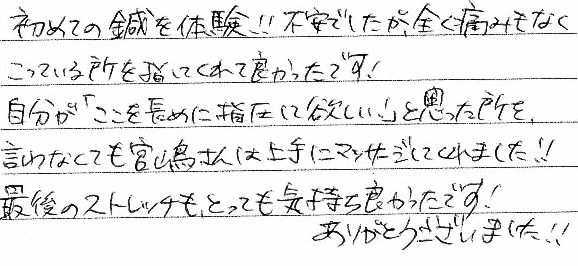 初めての鍼を体験!! 不安でしたが、全く痛みもなく
こっている所を指してくれて良かったです!
自分が「ここを長めに指圧して欲しい!」と思った所を、
言わなくても宮嶋さんは上手にマッサージしてくれました!!
最後のストレッチも、とっても気持ち良かったです!
ありがとうございました!!